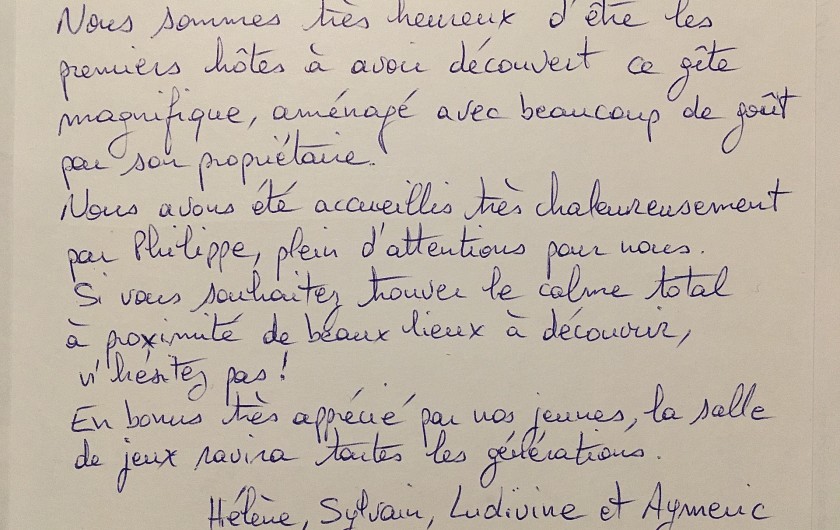 Nous sommes très heureux d'être les
premiers hôtes à avoir découvert ce gîte
magnifique, aménagé avec beaucoup de goût
par son propriétaire.
Nous avons été accueillis très chaleureusement
par Philippe, plein d'attentions pour nous.
Si vous souhaitez trouver le calme total
à proximité de beaux lieux à découvrir,
n'hésitez pas !
En bonus très apprécié par nos jeunes, la salle
de jeux ravira toutes les générations.
Hélène, Sylvain, Ludivine et Aymeric